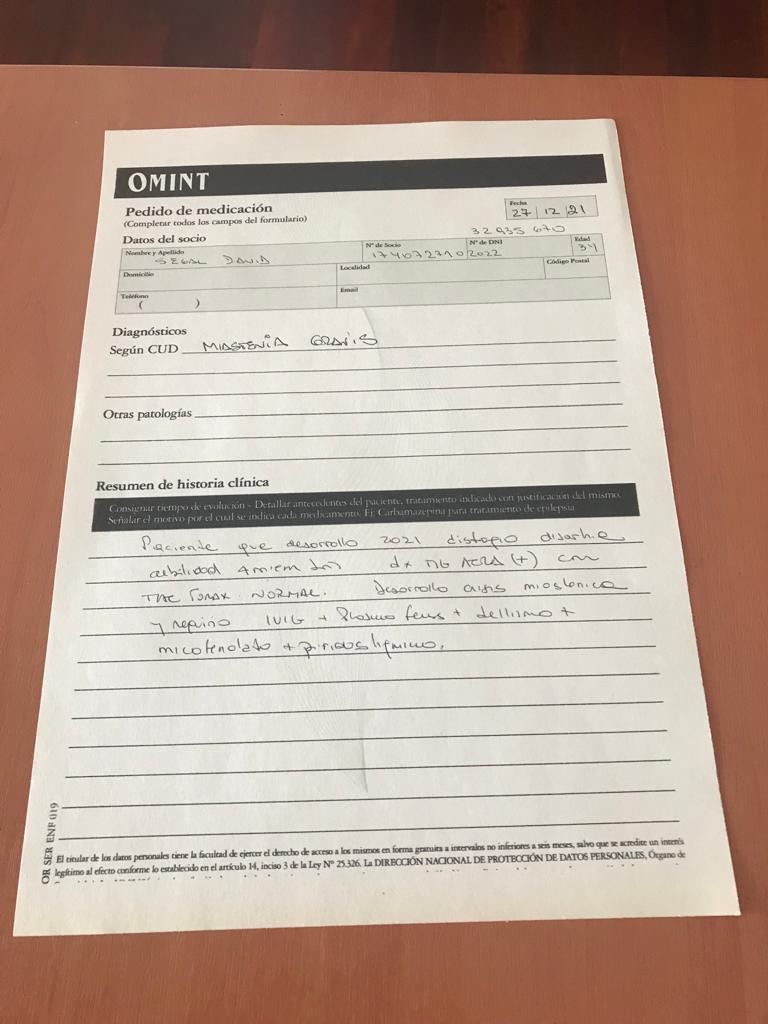 OMINT
Pedido de medicación
(Completar todos los campos del formulario)
Fecha
27 / 12 / 21
32935 670
Datos del socio
Nombre y Apellido
SEGAL DAVID
Nº de Socio
1740727102022
Nº de DNI
Edad
34
Domicilio
Localidad
Código Postal
Teléfono
( )
Email
Diagnósticos
Según CUD MIASTENIA GRAVIS
Otras patologías
Resumen de historia clínica
Consignar tiempo de evolución - Detallar antecedentes del paciente, tratamiento indicado con justificación del mismo.
Señalar el motivo por el cual se indica cada medicamento. Ej: Carbamazepina para tratamiento de epilepsia
Paciente que desarrollo 2021 disfagia
debilidad 4 miem dx MG ACRA (+) con
TAC Torax NORMAL. Desarrollo crisis miastenica
y requirio IVIG + Plasmaferesis + +
micofenolato +
OR SER ENF 019
El titular de los datos personales tiene la facultad de ejercer el derecho de acceso a los mismos en forma gratuita a intervalos no inferiores a seis meses, salvo que se acredite un interés
legítimo al efecto conforme lo establecido en el artículo 14, inciso 3 de la Ley Nº 25.326. La DIRECCIÓN NACIONAL DE PROTECCIÓN DE DATOS PERSONALES, Órgano de